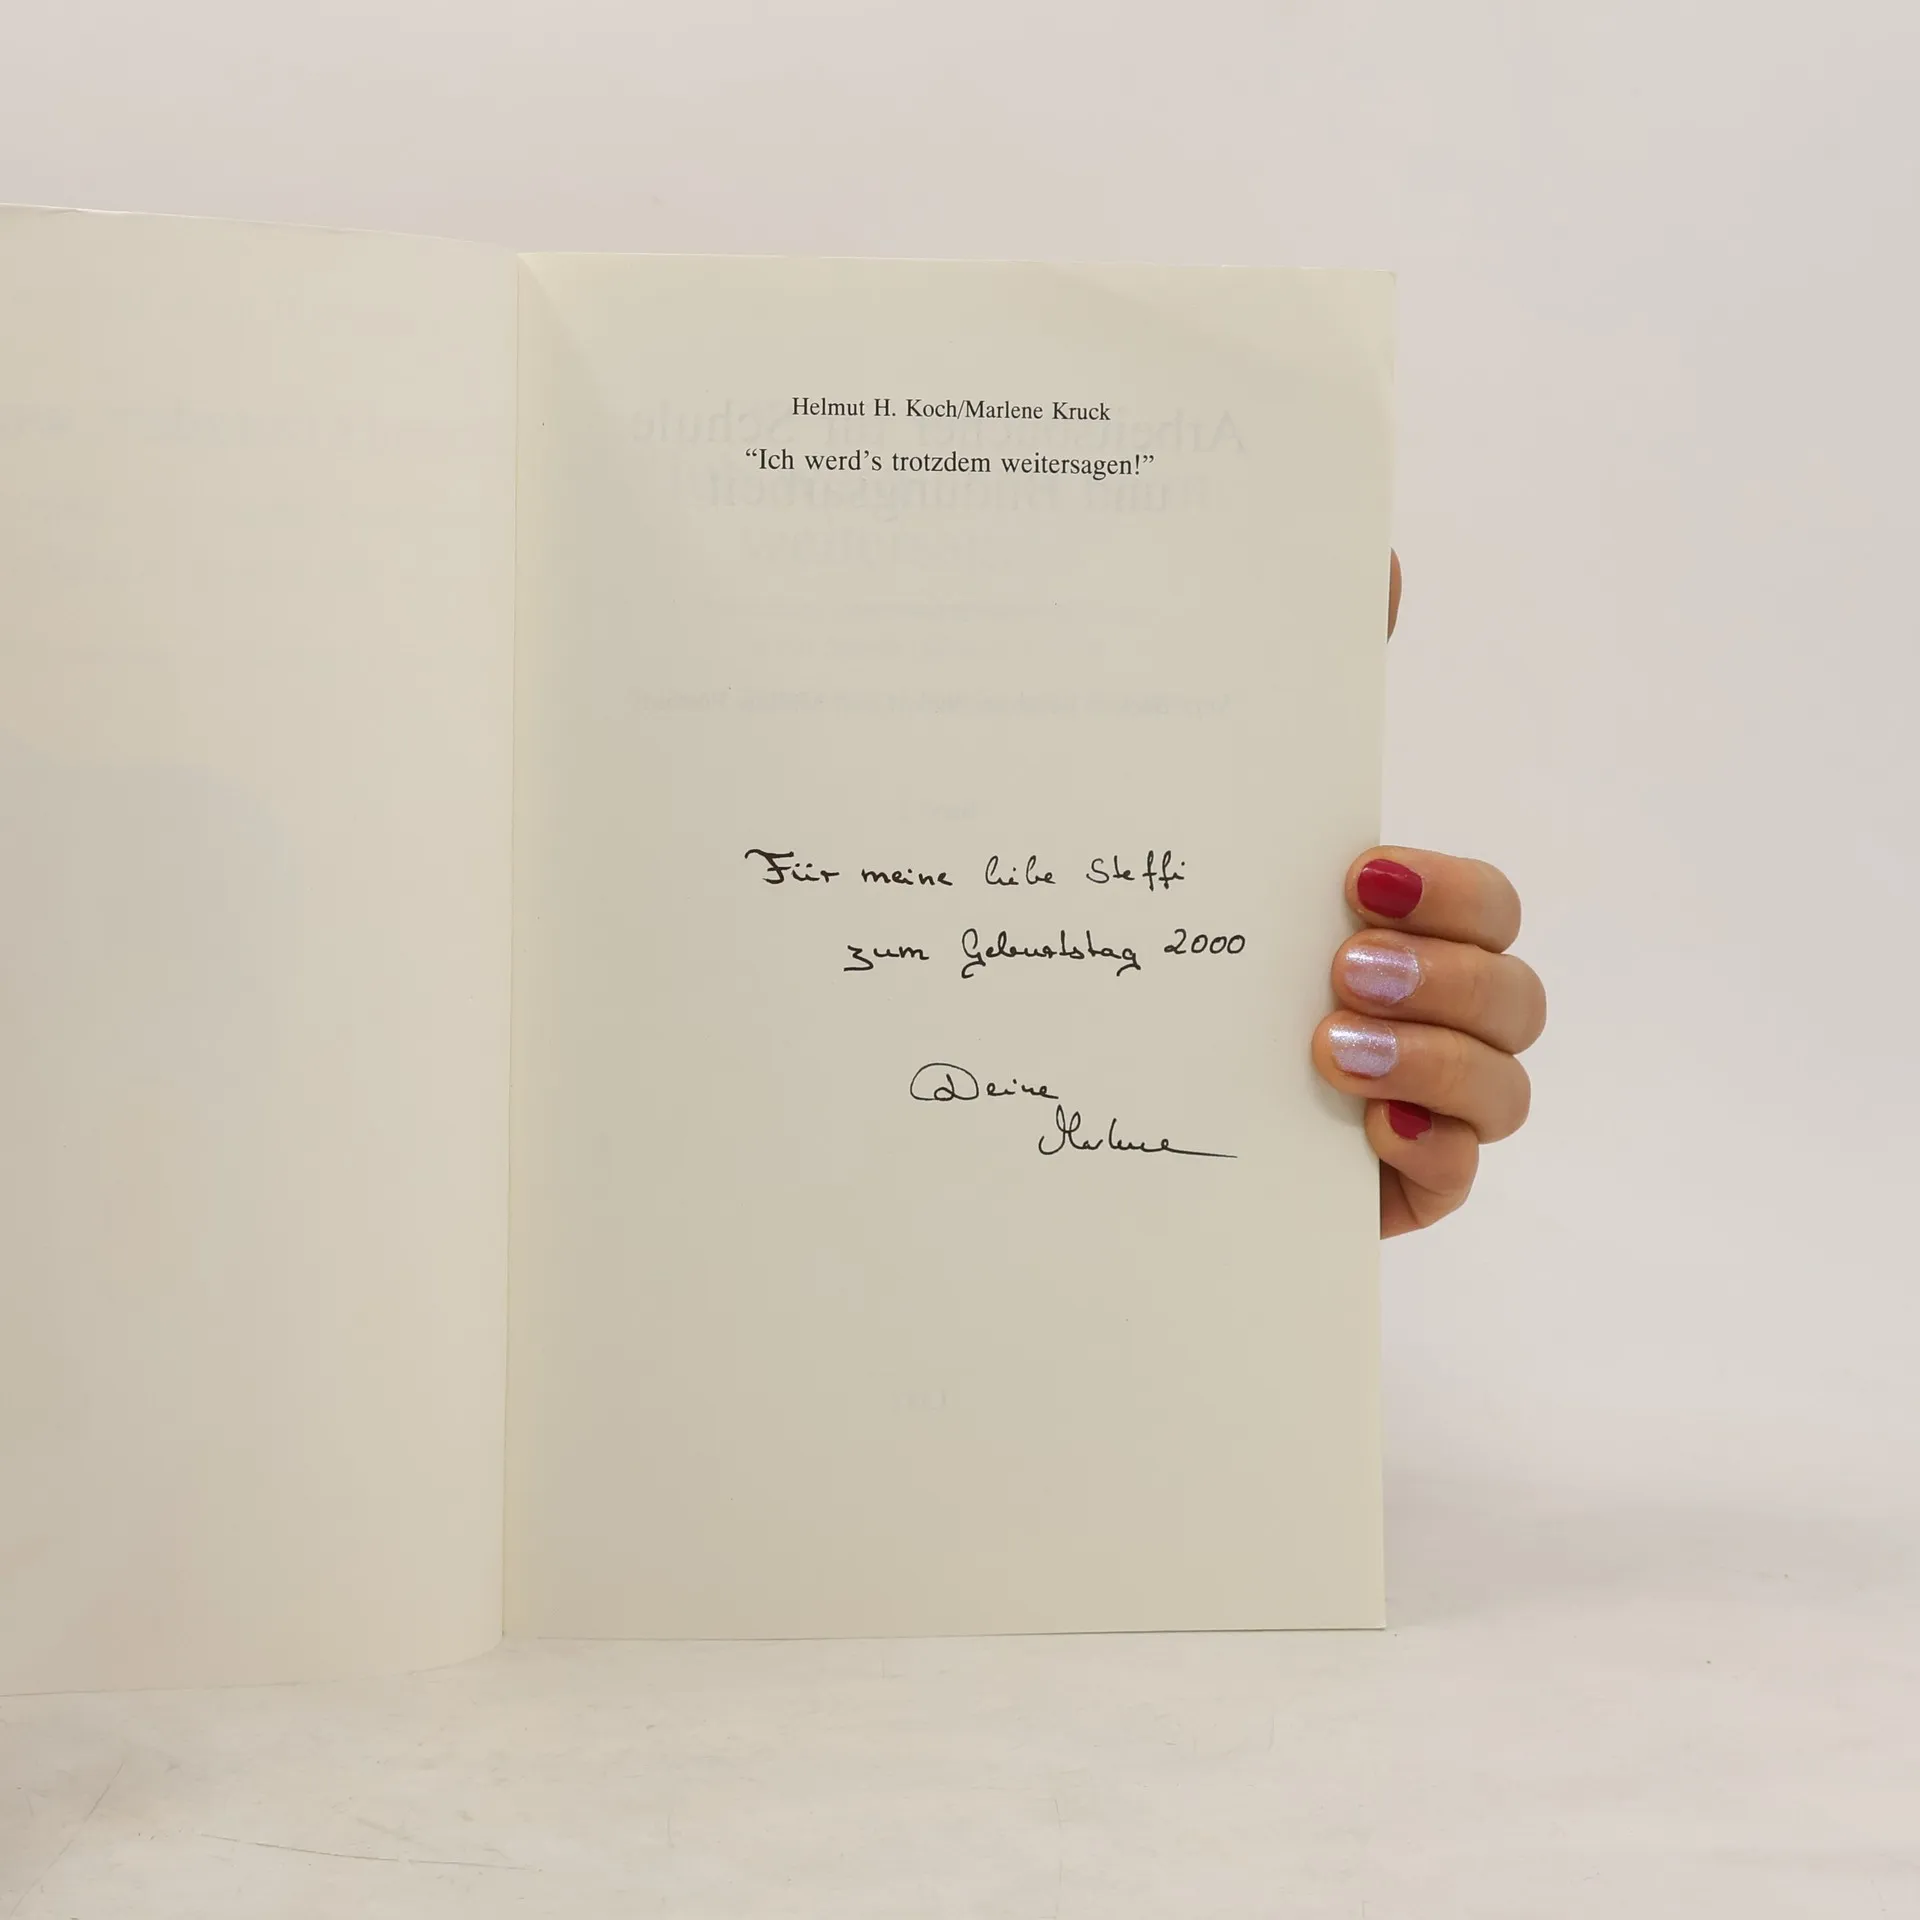 Helmut H. Koch/Marlene Kruck
“Ich werd’s trotzdem weitersagen!”
Für meine liebe Steffi
zum Geburtstag 2000
Deine
Marlene